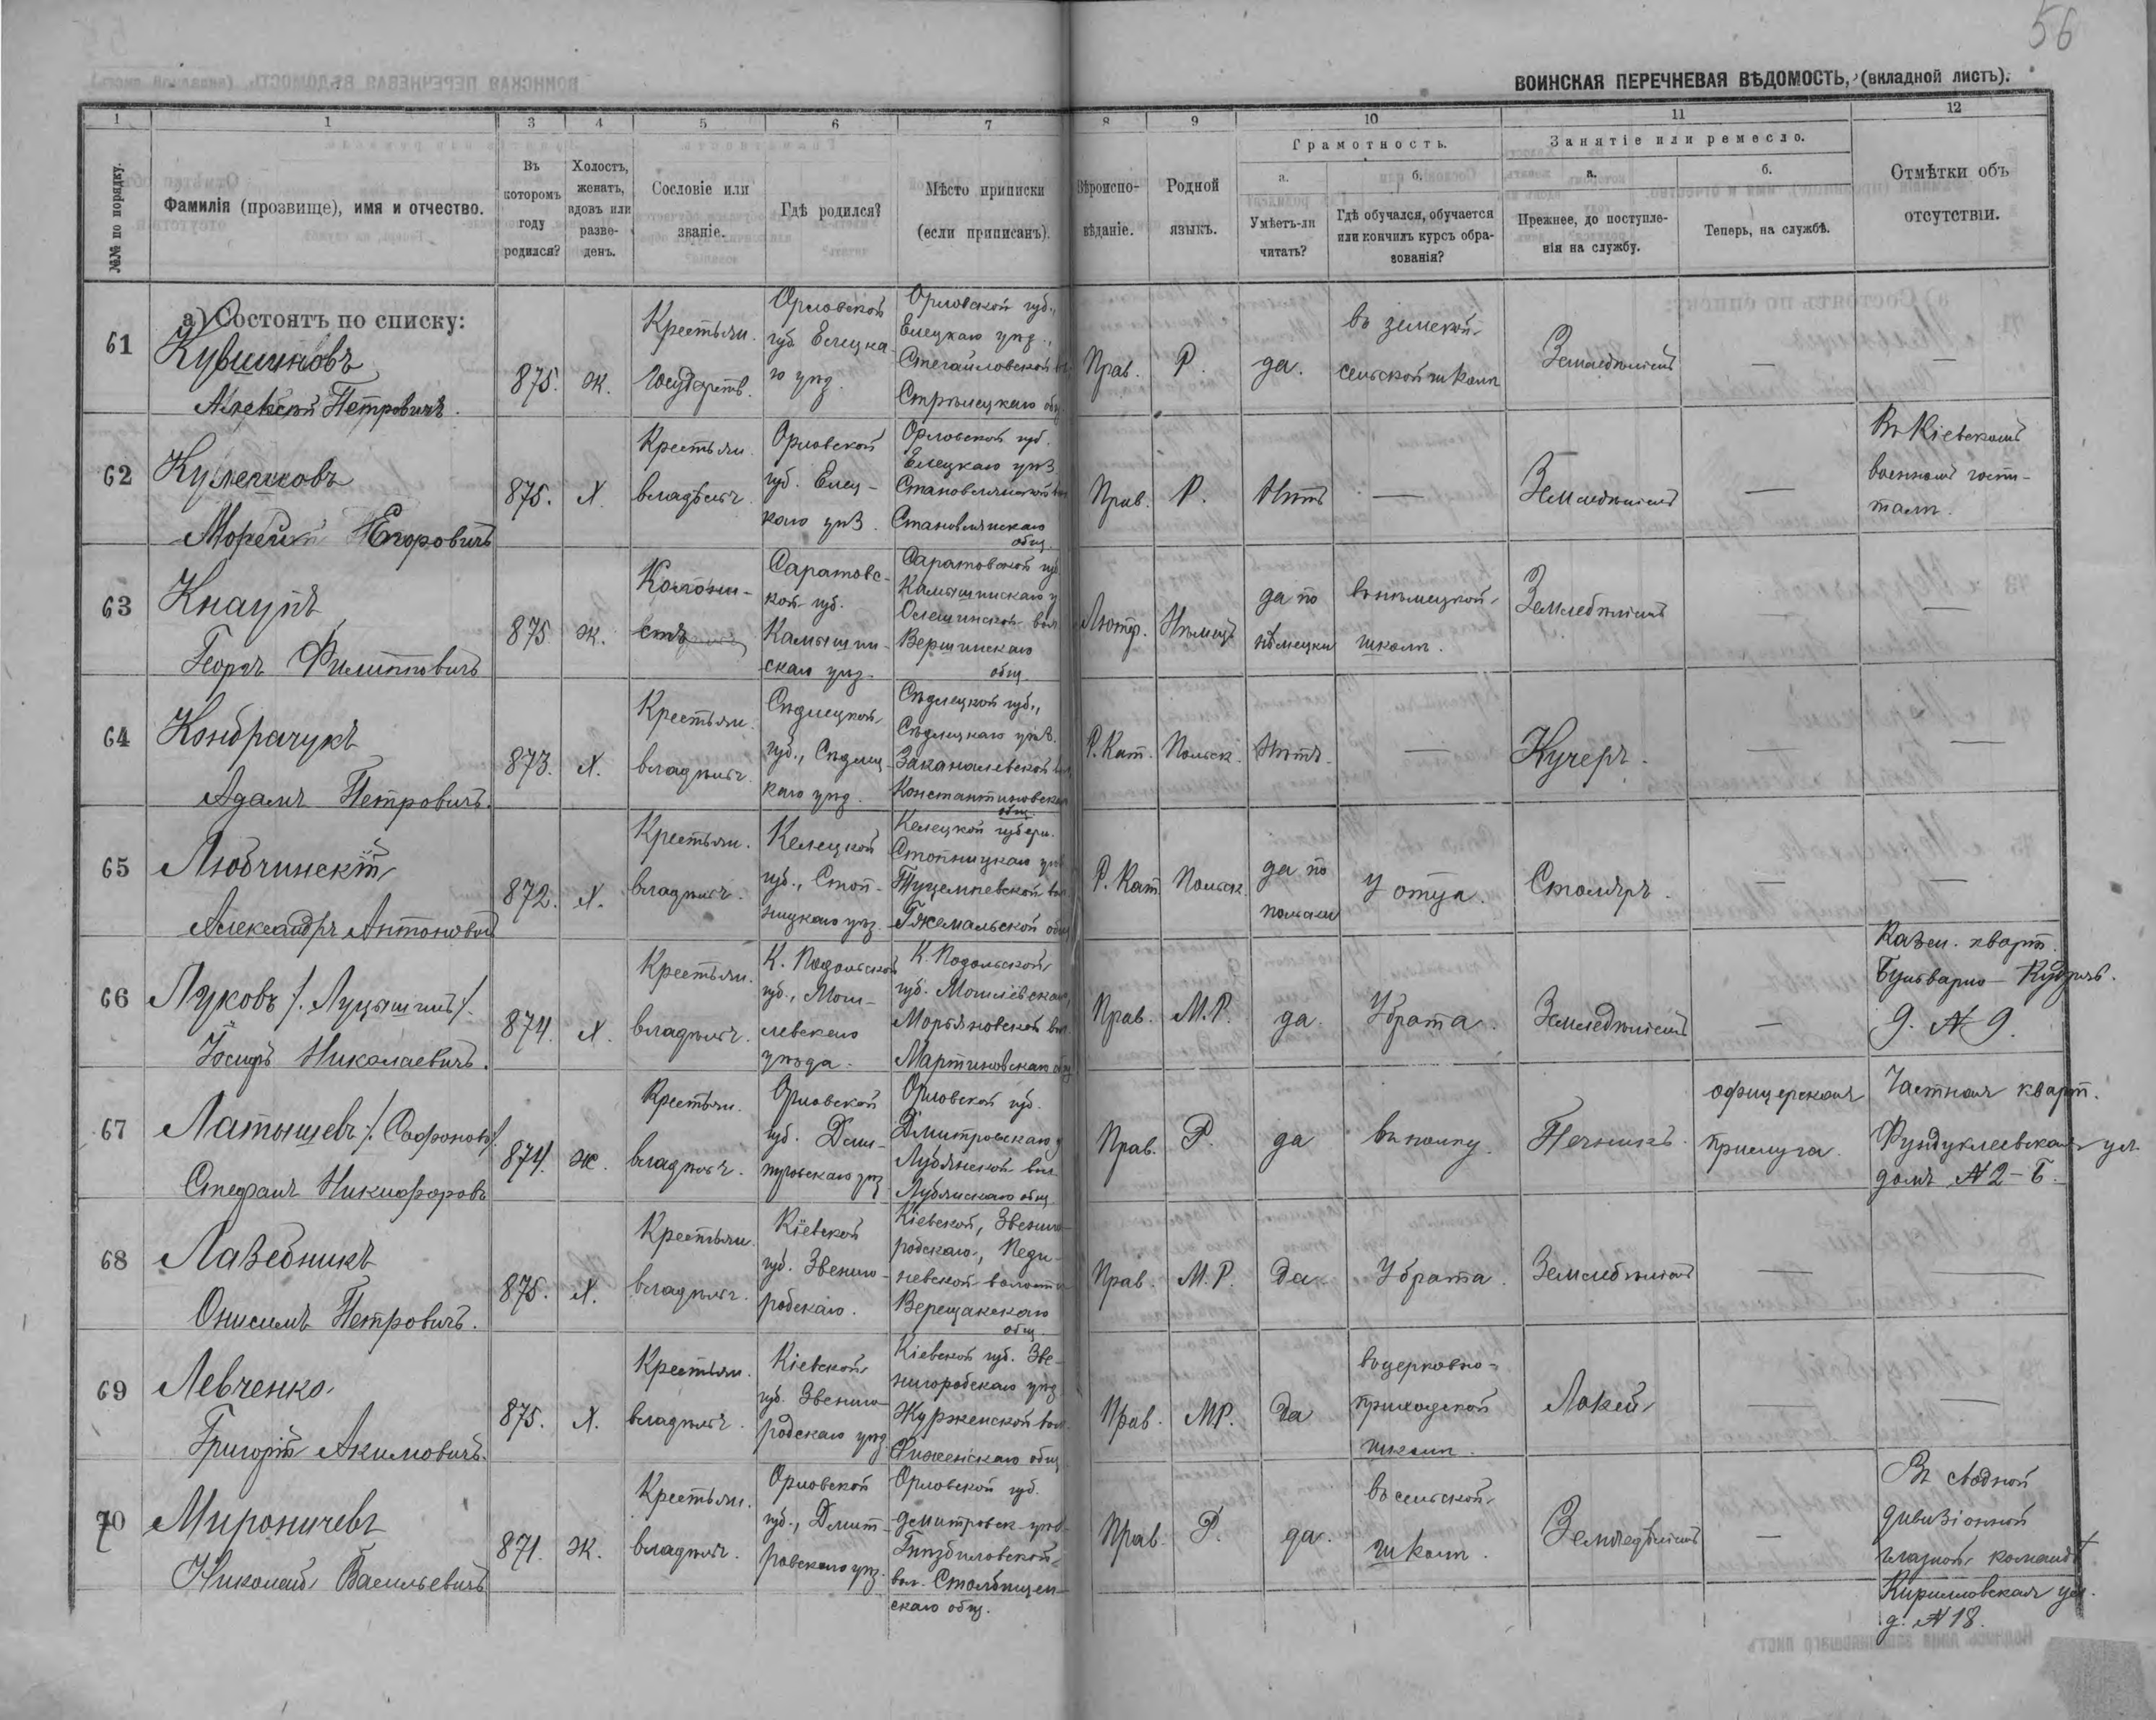 56
ВОИНСКАЯ ПЕРЕЧНЕВАЯ ВѢДОМОСТЬ, (вкладной листъ).
1 1 3 4 5 6 7 8 9 10 11 12
№№ по порядку.
Фамилія (прозвище), имя и отчество.
Въ
которомъ
году
родился?
Холостъ,
женатъ,
вдовъ или
разве-
денъ.
Сословіе или
званіе.
Гдѣ родился?
Мѣсто приписки
(если приписанъ).
Вѣроиспо-
вѣданіе.
Родной
языкъ.
Грамотность.
а.
Умѣетъ-ли
читать?
б.
Гдѣ обучался, обучается
или кончилъ курсъ обра-
зованія?
Занятіе или ремесло.
а.
Прежнее, до поступле-
нія на службу.
б.
Теперь, на службѣ.
Отмѣтки объ
отсутствіи.
а) Состоятъ по списку:
61
Кувшиновъ
Алексѣй Петровичъ.
875.
Ж.
Крестьян.
государств.
Орловской
губ. Елецка
го уѣзд.
Орловской губ.,
Елецкаго уѣзд.,
Стегайловской
Стрѣлецкаго общ.
Прав.
Р.
да.
въ земской
сельской школѣ
Земледѣлiемъ
—
—
62
Кулешовъ
Егоровичъ
875.
Х.
Крестьян.
владѣльч.
Орловской
губ. Елец-
каго уѣз.
Орловской губ.
Елецкаго уѣз.
Становлянской
Становлянскаго
общ.
Прав.
Р.
Нѣтъ
—
Земледѣлiемъ
—
Въ Кіевскомъ
военномъ госпи-
талѣ.
63
Кнаупъ
Георгъ Филипповичъ
875
Ж.
Колони-
стъ
Саратовс-
кой губ.
Камышин-
скаго уѣзд.
Саратовской губ
Камышинскаго у
Олешинской вол
Вершинскаго
общ.
Лютер.
Нѣмецъ
да по
нѣмецки
въ нѣмецкой
школѣ.
Земледѣлiемъ
—
—
64
Кондрачукъ
Адамъ Петровичъ.
873.
Х.
Крестьян.
владѣльч.
Сѣдлецкой
губ., Сѣдлец-
каго уѣзд.
Сѣдлецкой губ.,
Сѣдлецкаго уѣз.
Константиновска
общ.
Р. Кат.
Польск.
Нѣтъ.
—
Кучеръ.
—
—
65
Любчинскій
Александръ Антонович
872.
Х.
Крестьян.
владѣльч.
Келецкой
губ., Стоп-
ницкаго уѣз.
Келецкой губерн.
Стопницкаго уѣз
общ
Р. Кат
Польск.
да по
польски
у отца.
Столяръ.
—
—
66
Луковъ /. Луцышинъ/.
Іосифъ Николаевичъ.
874.
Х.
Крестьян.
владѣльч.
К. Подольской
губ., Моги-
левскаго
уѣзда.
К. Подольской
губ. Могилевскаго
вол.
Мартиновскаго общ
Прав.
М.Р.
да.
У брата.
Земледѣлiемъ
—
Казен. кварт.
Бульварно-Кудряв.
д. № 9.
67
Латышевъ /. Софоновъ/.
Стефанъ Никифоровъ
874.
Ж.
Крестьян.
владѣльч.
Орловской
губ. Дми-
тровскаго уѣз
Орловской губ.
Дмитровскаго у
Лубянской вол
Лубянскаго общ
Прав.
Р.
да
въ полку.
Печникъ.
офицерская
прислуга.
Частная кварт.
Фундуклеевская ул.
домъ № 2-Б.
68
Лазебникъ
Онисимъ Петровичъ.
875.
Х.
Крестьян.
владѣльч.
Кіевской
губ. Звениго-
родскаго.
Кіевской, Звениго-
родскаго, Педи-
невской волости
Верещакскаго
общ.
Прав.
М.Р.
Да
У брата.
Земледѣлiемъ
—
—
69
Левченко
Григорій Акимовичъ.
875.
Х.
Крестьян.
владѣльч.
Кіевской
губ. Звениго-
родскаго уѣзд
Кіевской губ. Зве-
нигородскаго уѣзд
вол.
общ
Прав.
МР.
Да
въ церковно-
приходской
школѣ.
Лакей
—
—
70
Мироничевъ
Николай Васильевичъ
871.
Ж.
Крестьян.
владѣльч.
Орловской
губ., Дмит-
ровскаго уѣз.
Орловской губ.
Дмитровск. уѣзд
Гнѣздиловской
вол. Столбищен-
скаго общ.
Прав.
Р.
да.
въ сельской
школѣ.
Земледѣлiемъ
—
Въ сводной
дивизіонной
глазной командѣ
Кирилловская ул.
д. № 18.